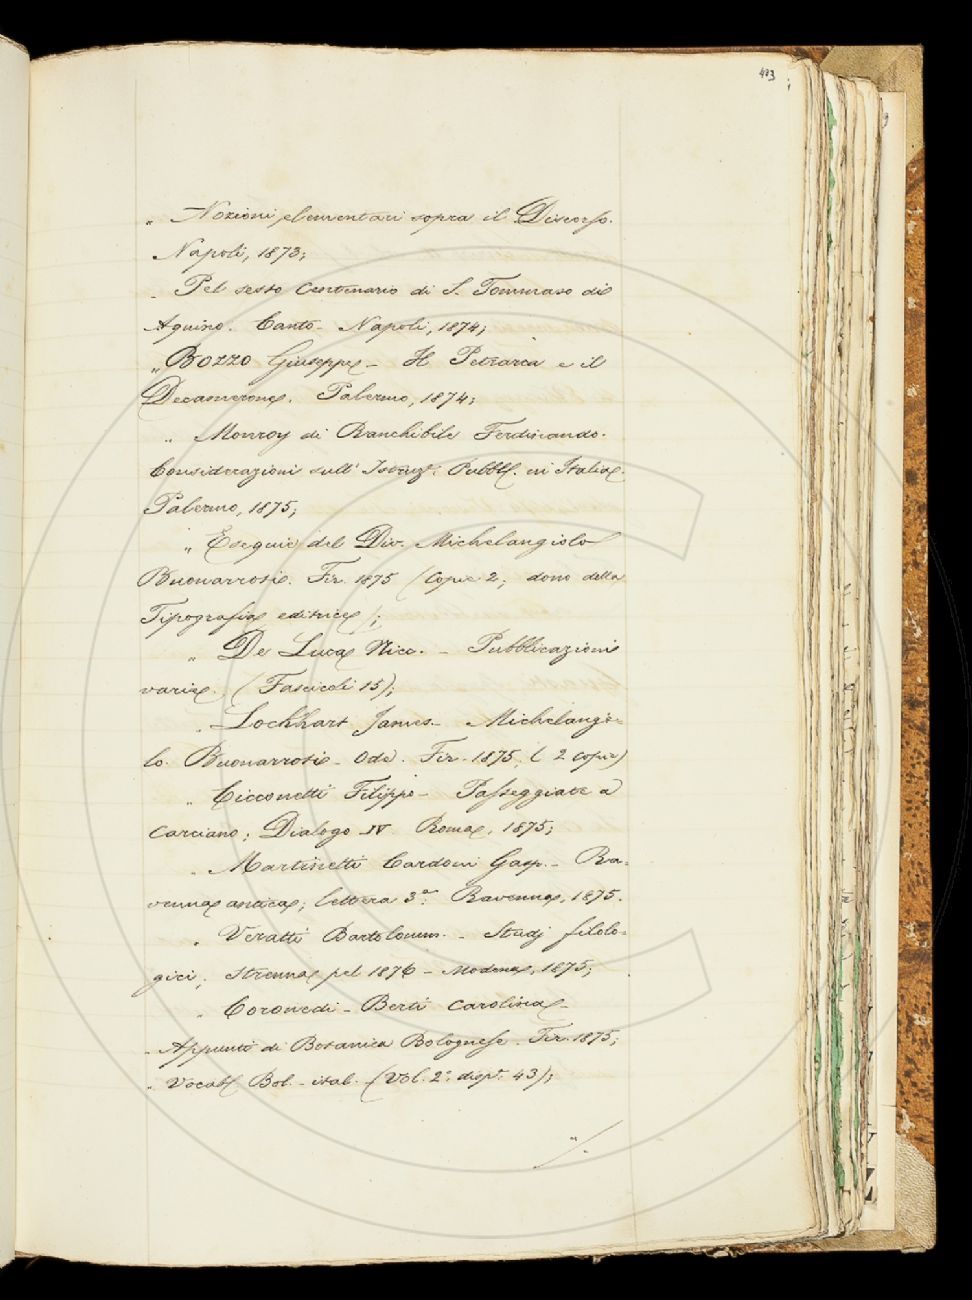 493
„ Nozioni elementari sopra il Discorso.
Napoli, 1873;
„ Pel sesto Centenario di S. Tommaso di
Aquino. Canto – Napoli, 1874;
„ Bozzo Giuseppe – Il Petrarca e il
Decamerone. Palermo, 1874;
„ Monroy di Ranchibile Ferdinando.
Considerazioni sull' Istruz. Pubbl. in Italia
Palermo, 1875;
„ Esequie del Div. Michelangiolo
Buonarroti. Fir. 1875 (Copie 2; dono della
Tipografia editrice);
„ De Luca Nicc. – Pubblicazioni
varie. (Fascicoli 15);
„ Lochhart James – Michelangio-
lo Buonarroti – Ode. Fir. 1875. (2 copie)
„ Cicconetti Filippo – Passeggiate a
Carciano; Dialogo IV. Roma, 1875;
„ Martinetti Cardoni Gasp. – Ra-
venna antica; lettera 3ª. Ravenna, 1875.
„ Veratti Bartolomm. – Studj filolo-
gici; strenna pel 1876 – Modena, 1875;
„ Coronedi – Berti Carolina –
– Appunti di Botanica Bolognese. Fir. 1875;
„ Vocab. Bol. – ital. – (Vol. 2º disp.ª 43);